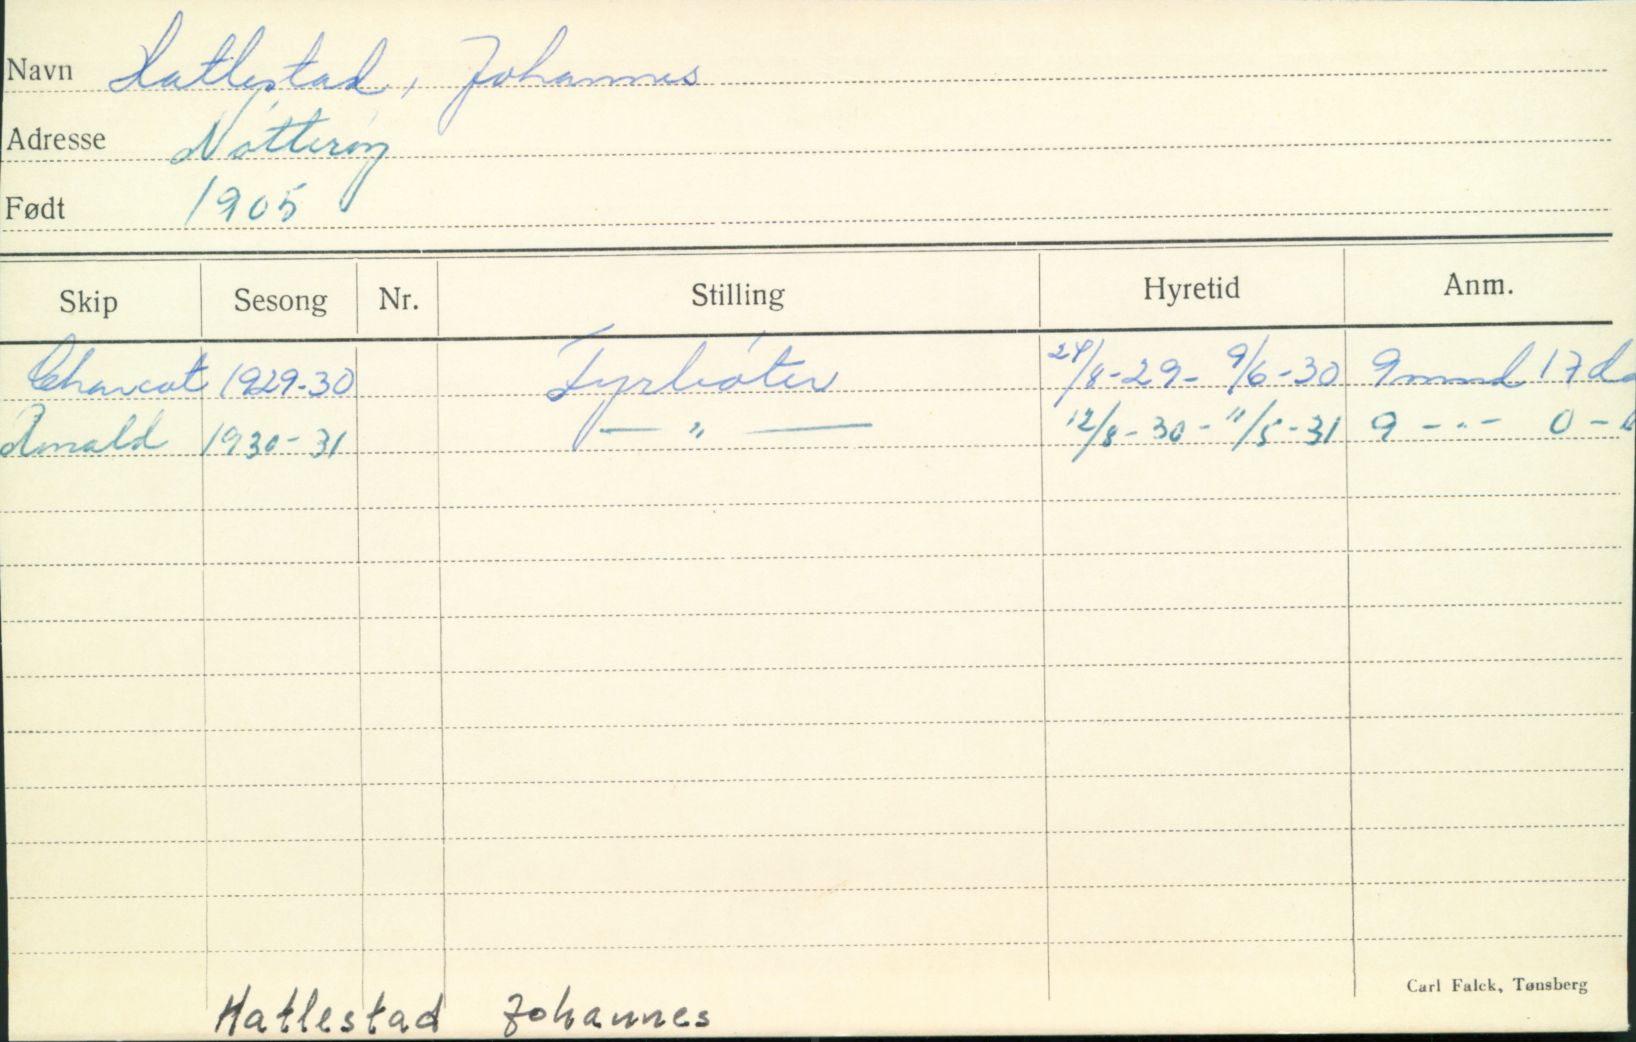 Navn Hatlestad, Johannes
Adresse Nøtterøy
Født 1905
Skip Sesong Nr. Stilling Hyretid Anm.
Charcot 1929-30 Fyrbøter 24/8-29- 9/6-30 9 mnd 17 da
Ronald 1930-31 — " — 12/8-30-11/5-31 9 - " - 0 - "
Carl Falck, Tønsberg
Hatlestad Johannes